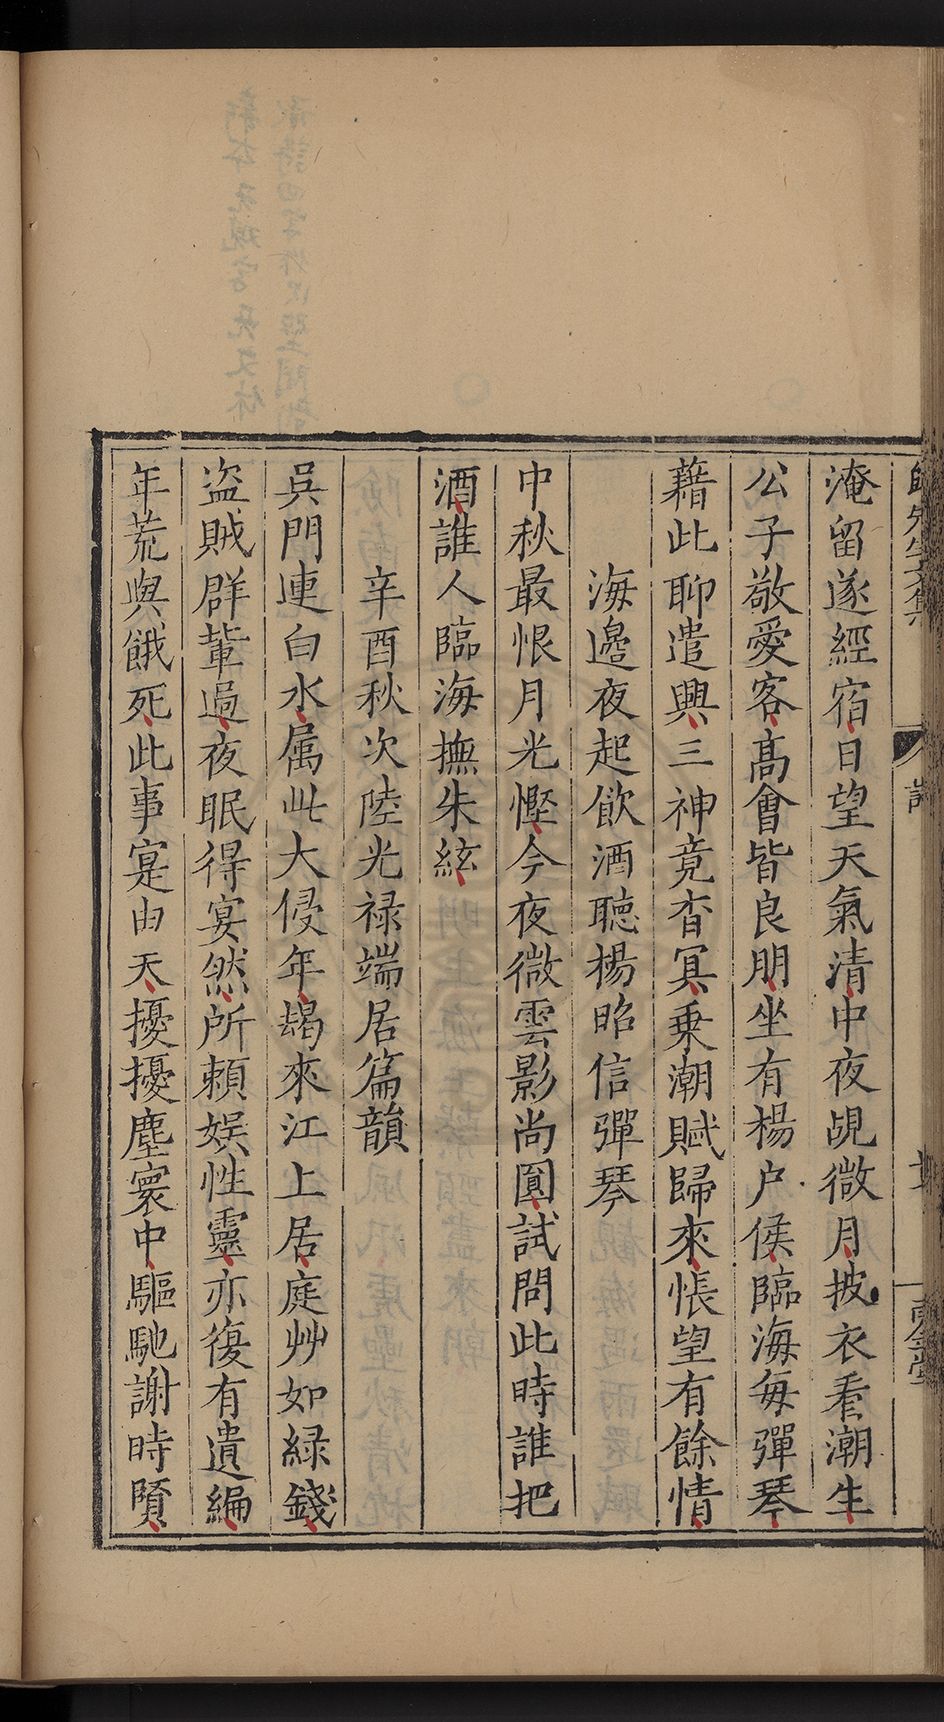 淹留遂經宿日望天氣清中夜覘微月披衣看潮生
公子敬愛客高會皆良朋坐有楊户侯臨海每彈琴
藉此聊遣興三神竟杳冥乗潮賦歸來悵望有餘情
海邉夜起飲酒聽楊昭信彈琴
中秋最恨月光慳今夜微雲影尚圓試問此時誰把
酒誰人臨海撫朱絃
辛酉秋次陸光禄端居篇韻
吳門連白水属此大侵年朅來江上居庭艸如緑錢
盗賊群輩過夜眠得宴然所頼娱性靈亦復有遺編
年荒與餓死此事寔由天擾擾塵寰中驅馳謝時賢